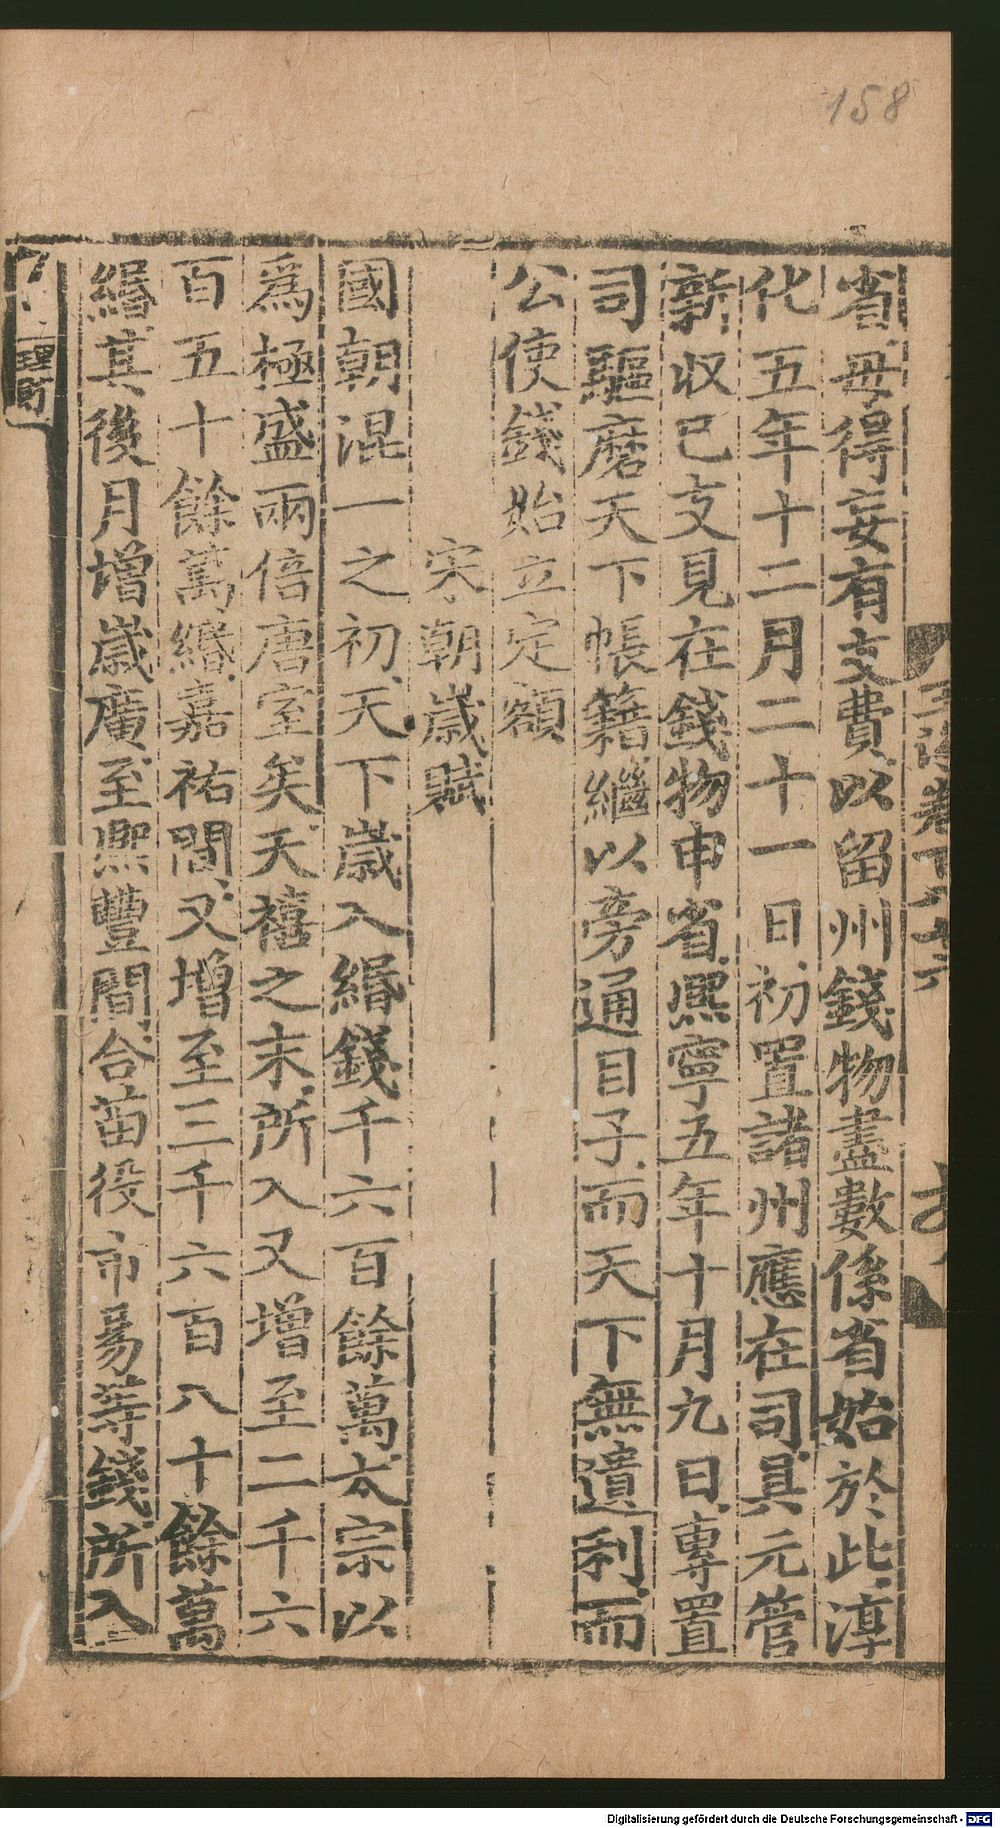 158
省毋得妄有支費以留州錢物盡數係省始於此淳
化五年十二月二十一日初置諸州應在司具元管
新収已支見在錢物申省熈寧五年十月九日專置
司驅磨天下帳籍繼以旁通目子而天下無遺利而
公使錢始立定額
宋朝歲賦
國朝混一之初天下歲入緡錢千六百餘萬太宗以
爲極盛兩倍唐室矣天禧之末所入又增至二千六
百五十餘萬緡嘉祐間又增至三千六百八十餘萬
緡其後月增歲廣至熈豐間合苗役市易等錢所入
理財
Digitalisierung gefördert durch die Deutsche Forschungsgemeinschaft - DFG